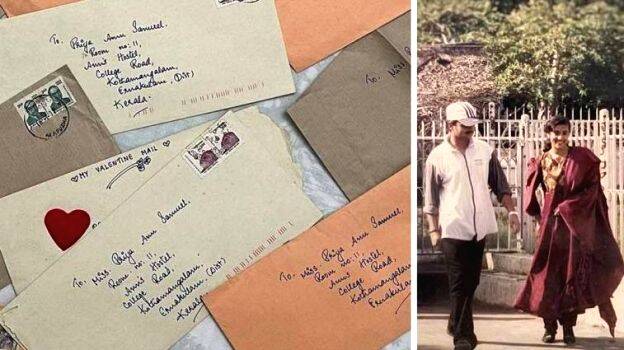 To, Priya Ann Samuel,
Room no: 11,
Annt Hostel,
College Road,
Kothamangalam,
Ernakulam (Dist)
Kerala.
To, Miss
♡ MY VALENTINE MAIL ♡
To, Miss Priya Ann Samuel,
Room no: 11,
Annt Hostel,
College Road,
Kothamangalam,
Ernakulam, (Dist)
Kerala
To, Miss Priya Ann Samuel,
Room no: 11,
Annt Hostel,
College Road,
Kothamangalam,
Ernakulam